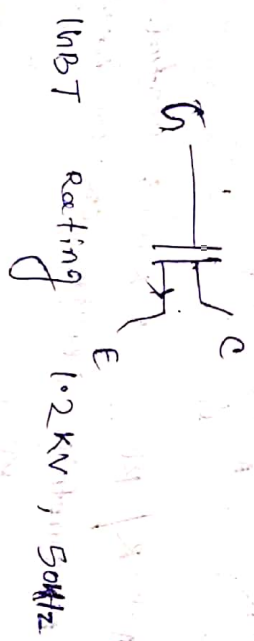 G
C
E
IGBT Rating 1.2 KV, 50Hz